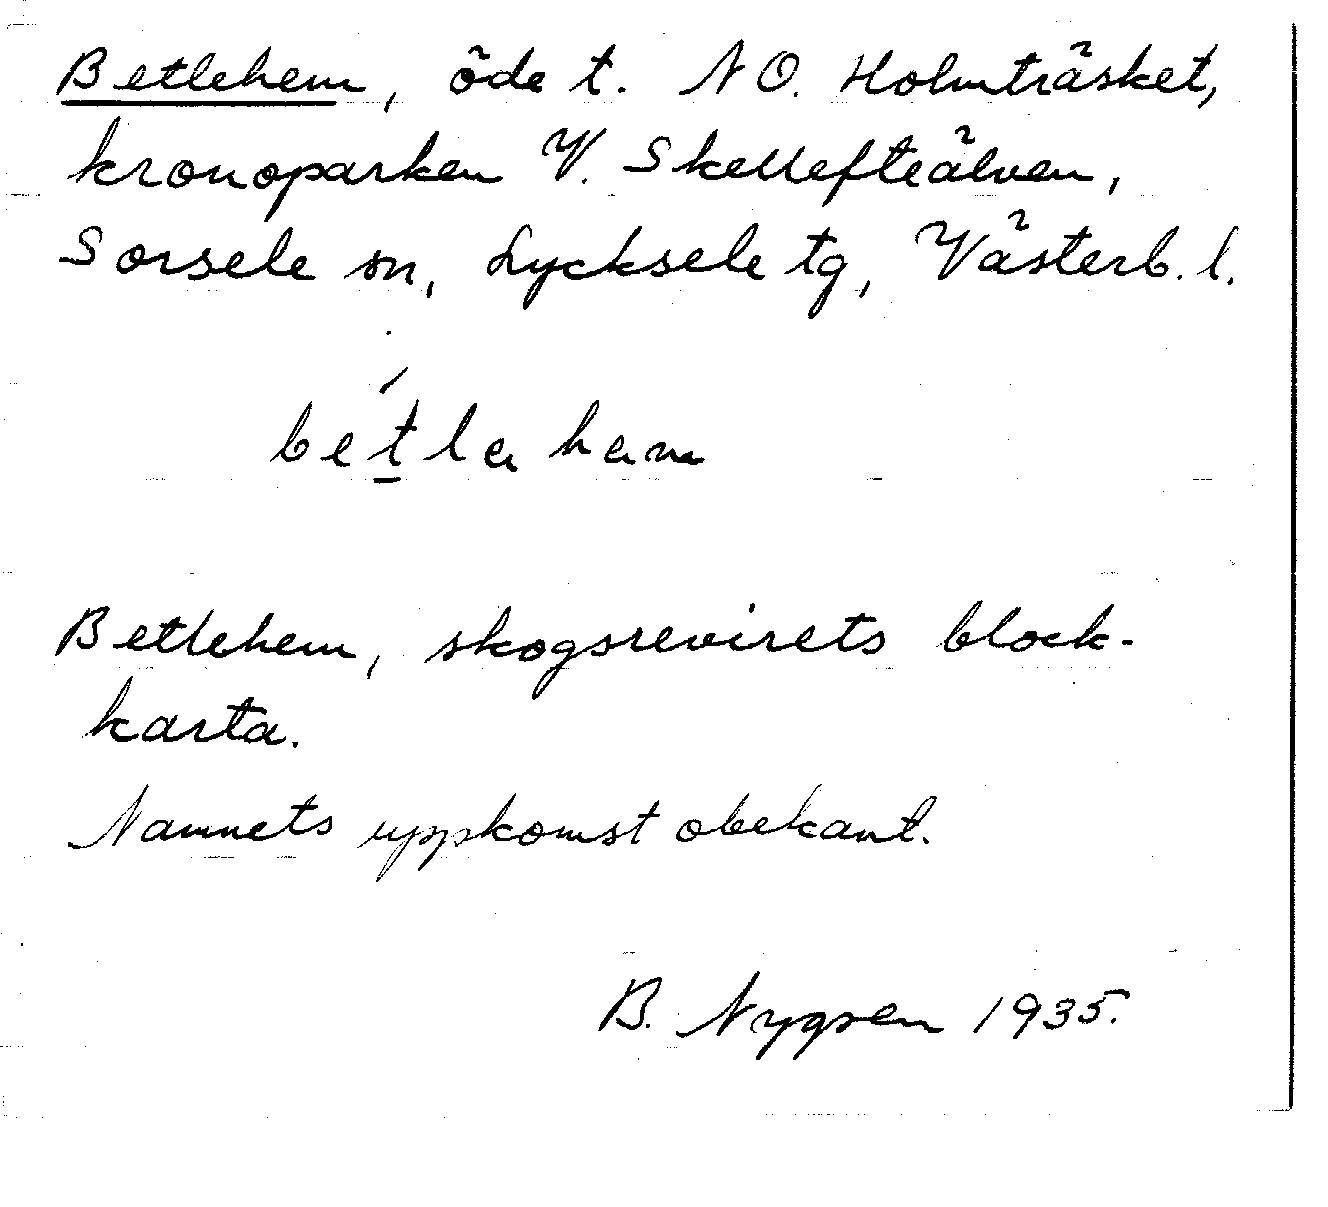 Betlehem, öde t. NO. Holmträsket,
kronoparken V. Skellefteälven,
Sorsele sn, Lycksele tg, Västerb. l.
bét̲la ham
Betlehem, skogsrevirets block-
karta.
Namnets uppkomst obekant.
B. Nygren 1935.